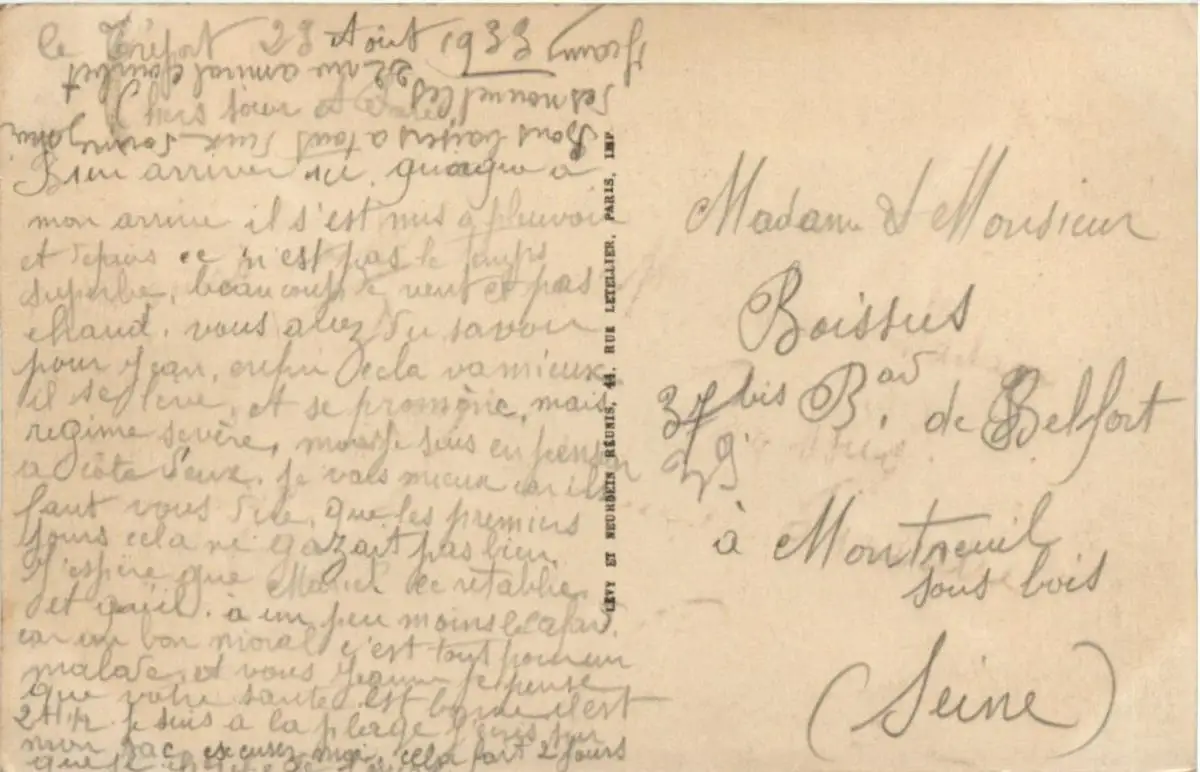 le Tréport 23 Août 1933
Chers sœur et
Bien arriver ici, quoique à
mon arrivée il s'est mis a pleuvoir
et depuis ce n'est pas le temps
superbe, beaucoup de vent et pas
chaud. vous avez du savoir
pour Jean, enfin cela va mieux
il se lève, et se promène, mais
regime sévère, moi je suis en pension
a côté d'eux. je vais mieux car il
faut vous dire que les premiers
jours cela ne gazait pas bien
J'espère que Marcel se rétablie
et qu'il à un peu moins le cafard
car un bon moral c'est tout pour un
malade, et vous Jeanne je pense
que votre santé est bonne il est
2H½ je suis à la plage j'écris sur
mon sac excusez-moi, cela fait 2 jours
que je
des nouvelles 22 rue amiral Courbet
Bons baisers a tous deux
LÉVY ET NEURDEIN RÉUNIS, 44, RUE LETELLIER, PARIS, IMP.
Madame & Monsieur
Boissus
37 bis Bard de Belfort
à Montreuil
sous bois
(Seine)